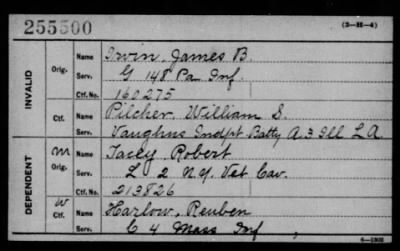 255500 (3-35-4)
INVALID
Orig.
Name Irvin, James B.
Serv. G 148 Pa Inf.
Ctf. No. 160275
Ctf.
Name Pilcher, William S.
Serv. Vaughns Indpt Batty A. 3 Ill L A
DEPENDENT
m
Orig.
Name Tacey Robert
Serv. L 2 N.Y. Vet Cav.
Ctf. No. 213826
W
Ctf.
Name Harlow, Reuben
Serv. C 4 Mass Inf